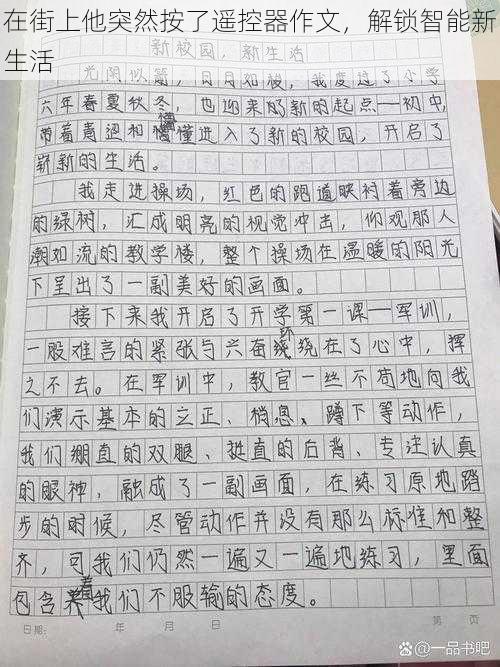 在街上他突然按了遥控器作文，解锁智能新
生活
新校园，新生活
光阴似箭，日月如梭，我度过了小学
六年春夏秋冬，也迎来了新的起点—初中，
带着青涩和懵懂进入了新的校园，开启了
崭新的生活。
我走进操场，红色的跑道映衬着旁边
的绿树，汇成明亮的视觉冲击，仰观那人
潮如流的教学楼，整个操场在温暖的阳光
下呈出了一副美好的画面。
接下来我开启了开学第一课—军训，
一股难言的紧张与兴奋环绕在了心中，挥
之不去。在军训中，教官一丝不苟地向我
们演示基本的立正、稍息、蹲下等动作，
我们绷直的双腿、挺直的后背、专注认真
的眼神，融成了一副画面，在练习原地踏
步的时候，尽管动作并没有那么标准和整
齐，可我们仍然一遍又一遍地练习，里面
包含着我们不服输的态度。
日期： 年 月 日 第 页
百度 一品书吧